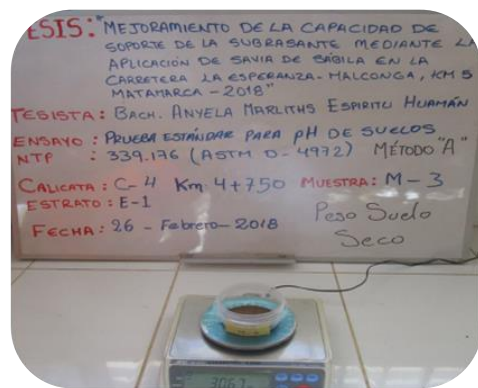 ESIS: "MEJORAMIENTO DE LA CAPACIDAD DE
SOPORTE DE LA SUBRASANTE MEDIANTE LA
APLICACIÓN DE SAVIA DE SÁBILA EN LA
CARRETERA LA ESPERANZA - MALCONGA, KM 5
MATAMARCA - 2018"
TESISTA: BACH. ANYELA MARLITHS ESPIRITU HUAMÁN
ENSAYO: PRUEBA ESTÁNDAR PARA pH DE SUELOS
NTP : 339.176 (ASTM D-4972) MÉTODO "A"
CALICATA: C-4 Km 4+750 MUESTRA: M-3
ESTRATO: E-1
Peso Suelo
Seco
FECHA: 26 - Febrero - 2018